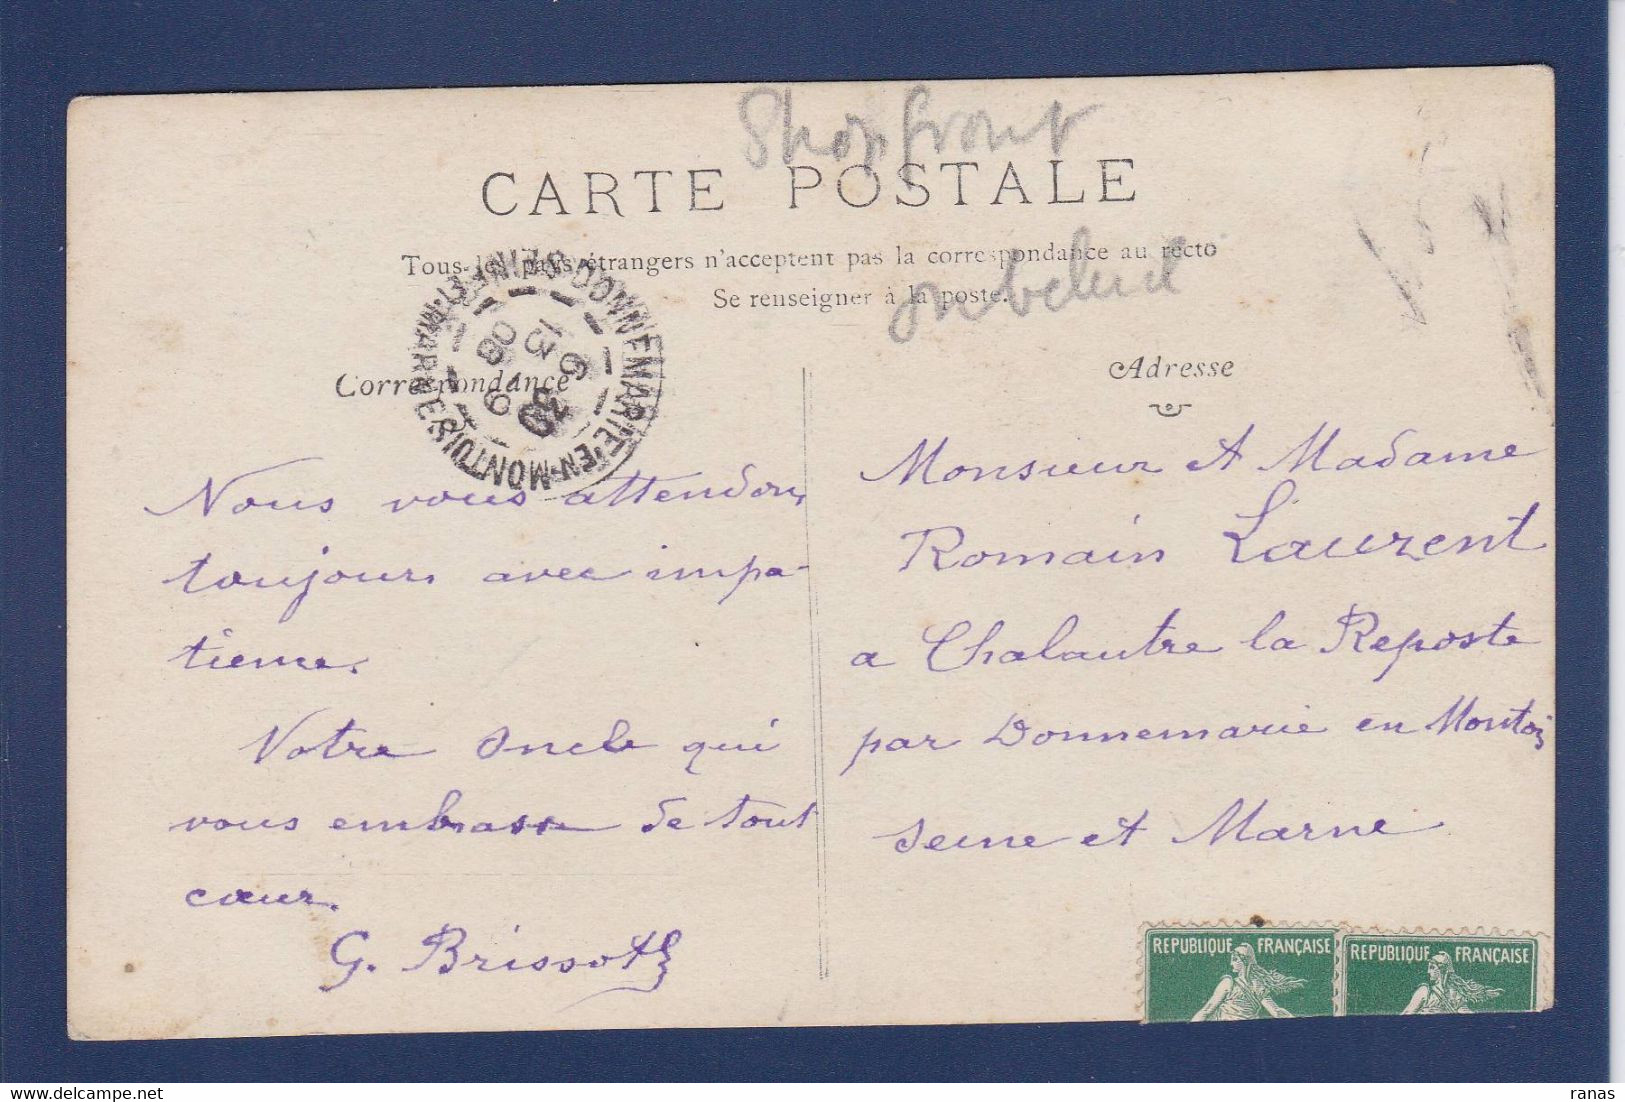 Shopfront
CARTE POSTALE
Tous les pays étrangers n'acceptent pas la correspondance au recto
Se renseigner à la poste.
Correspondance
DONNEMARIE-EN-MONTOIS
SEINE-ET-MARNE
13
6
08
Nous vous attendons
toujours avec impa-
tience.
Votre Oncle qui
vous embrasse de tout
cœur.
G. Brissot
Adresse
Monsieur et Madame
Romain Laurent
a Chalautre la Reposte
par Donnemarie en Montois
Seine et Marne
REPUBLIQUE FRANÇAISE
REPUBLIQUE FRANÇAISE
ranas